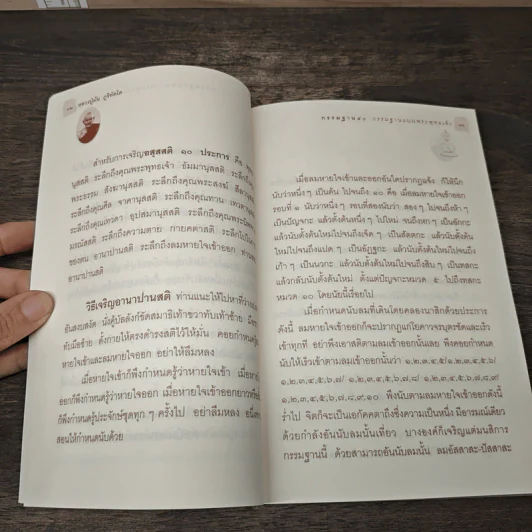 หลวงปู่มั่น ภูริทัตโต
สำหรับการเจริญอนุสสติ ๑๐ ประการ คือ
นุสสติ ระลึกถึงคุณพระพุทธเจ้า ธัมมานุสสติ ระลึก
พระธรรม สังฆานุสสติ ระลึกถึงคุณพระสงฆ์ สีลา
ระลึกถึงคุณศีล จาคานุสสติ ระลึกถึงคุณทาน เทวตา
ระลึกถึงคุณเทวดา อุปสมานุสสติ ระลึกถึงคุณพระนิพ
มรณัสสติ ระลึกถึงความตาย กายคตาสติ ระลึก
ของตน อานาปานสติ ระลึกถึงลมหายใจเข้าออก
อานาปานสติ
วิธีเจริญอานาปานสติ ท่านแนะให้ไปหาที่ว่าง
อันสงบสงัด นั่งคู้บัลลังก์ขัดสมาธิเท้าขวาทับเท้าซ้าย มือ
ทับมือซ้าย ตั้งกายให้ตรงดำรงสติไว้ให้มั่น คอยกำหนดรู้
หายใจเข้าและลมหายใจออก อย่าให้ลืมหลง
เมื่อหายใจเข้าก็พึงกำหนดรู้ว่าหายใจเข้า เมื่อหาย
ออกก็พึงกำหนดรู้ว่าหายใจออก เมื่อหายใจเข้าออกยาวหรือ
ก็พึงกำหนดรู้ประจักษ์ชัดทุก ๆ ครั้งไป อย่าลืมหลง
สอนให้กำหนดนับด้วย
กรรมฐาน๔๐ กรรมฐานแบบพระพุทธเจ้า
เมื่อลมหายใจเข้าและออกอันใดปรากฏแจ้ง ก็ให้นึก
นับว่าหนึ่ง ๆ เป็นต้น ไปจนถึง ๑๐ คือ เมื่อลมหายใจเข้าออก
รอบที่ ๑ นับว่าหนึ่ง ๆ รอบที่สองนับว่า สอง ๆ ไปจนถึงห้า ๆ
เป็นปัญจกะ แล้วตั้งต้นหนึ่ง ๆ ไปใหม่ จนถึงหก ๆ เป็นฉักกะ
แล้วนับตั้งต้นใหม่ไปจนถึงเจ็ด ๆ เป็นสัตตกะ แล้วนับตั้งต้น
ใหม่ไปจนถึงแปด ๆ เป็นอัฏฐกะ แล้วนับตั้งต้นใหม่ไปจนถึง
เก้า ๆ เป็นนวกะ แล้วนับตั้งต้นใหม่ไปจนถึงสิบ ๆ เป็นทสกะ
แล้วกลับนับตั้งต้นใหม่ ตั้งแต่ปัญจกะหมวด ๕ ไปถึงทสกะ
หมวด ๑๐ โดยนัยนี้เรื่อยไป
เมื่อกำหนดนับลมที่เดินโดยคลองนาสิกด้วยประการ
ดังนี้ ลมหายใจเข้าออกก็จะปรากฏแก่โยคาวจรบุตรชัดและเร็ว
เข้าทุกที อย่าพึงเอาสติตามลมเข้าออกนั้นเลย พึงคอยกำหนด
นับให้เร็วเข้าตามลมเข้าออกนั้นว่า ๑,๒,๓,๔,๕/๑,๒,๓,๔,๕,๖/
๑,๒,๓,๔,๕,๖,๗/ ๑,๒,๓,๔,๕,๖,๗,๘/ ๑,๒,๓,๔,๕,๖,๗,๘,๙
๑,๒,๓,๔,๕,๖,๗,๘,๙,๑๐ พึงนับตามลมหายใจเข้าออกดังนี้
ร่ำไป จิตก็จะเป็นเอกัคคตาถึงซึ่งความเป็นหนึ่ง มีอารมณ์เดียว
ด้วยกำลังอันนับลมนั้นเที่ยว บางองค์ก็เจริญแต่มนสิการ
กรรมฐานนี้ ด้วยสามารถอันนับลมนั้น ลมอัสสาสะ-ปัสสาสะ